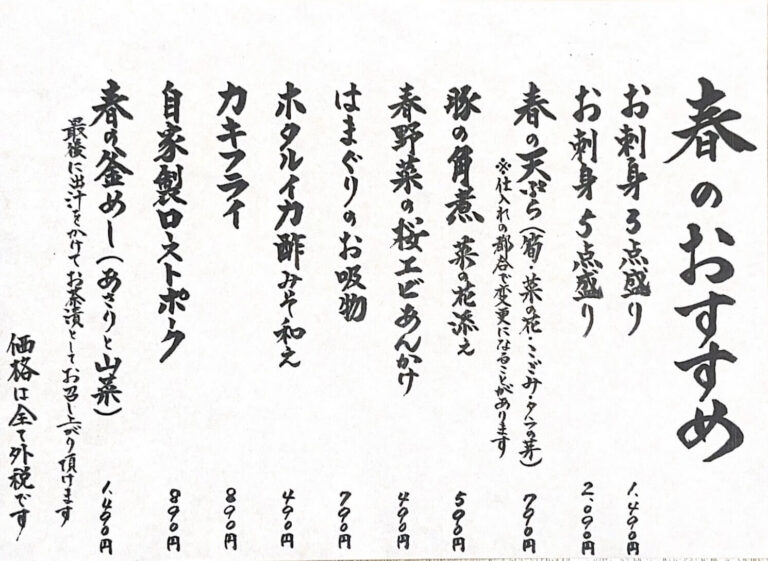 春のおすすめ
お刺身3点盛り 1.490円
お刺身5点盛り 2.090円
春の天ぷら(筍・菜の花・こごみ・タラの芽) 790円
※仕入れの都合で変更になることがあります
豚の角煮 菜の花添え 590円
春野菜の桜エビあんかけ 490円
はまぐりのお吸物 790円
ホタルイカ酢みそ和え 490円
カキフライ 890円
自家製ローストポーク 890円
春の釜めし(あさりと山菜) 1.490円
最後に出汁をかけてお茶漬としてお召し上がり頂けます
価格は全て外税です